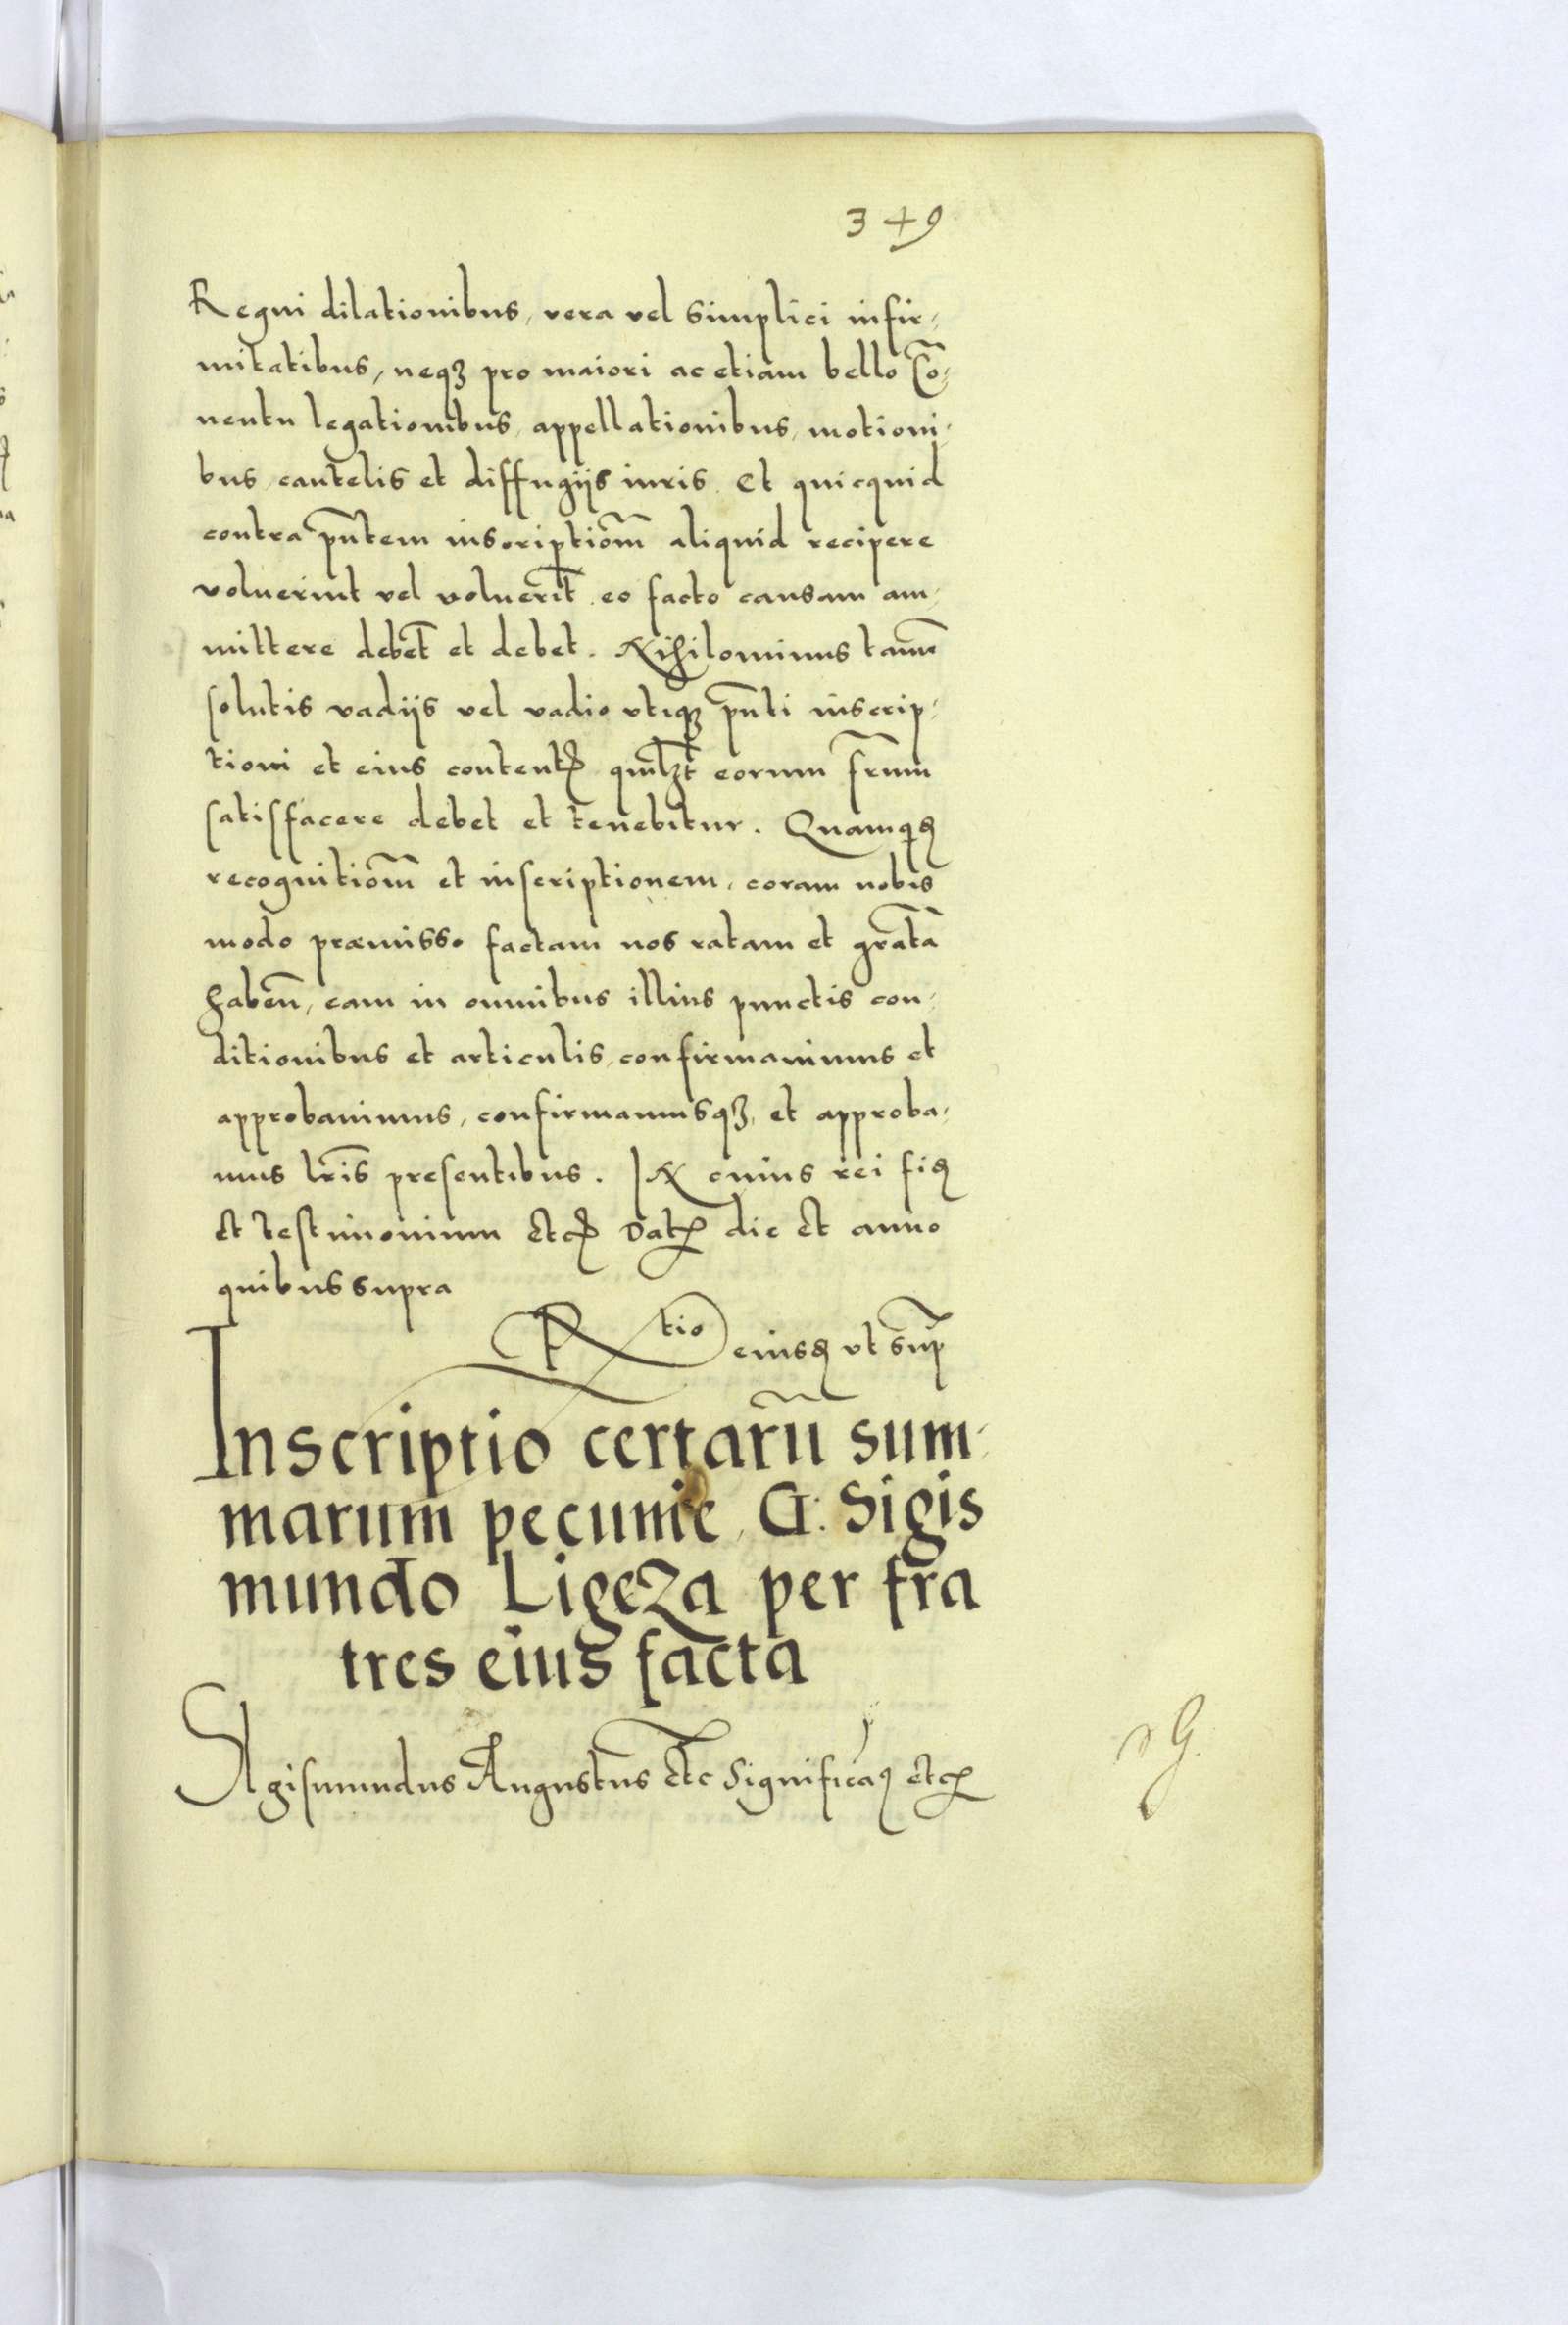 349
Regni dilationibus, vera vel simplici infir-
mitatibus, neqꝫ pro maiori ac etiam bello Cõ-
uentu legationibus, appellationibus, motioni-
bus, cautelis et diffugijs iuris. Et quicquid
contra pñtem inscriptiõm aliquid recipere
voluerint vel voluerĩt eo facto causam am-
mittere debẽt et debet. Nihilominus tamẽ
solutis vadijs vel vadio vtiqꝫ pñti inscrip-
tioni et eius contentꝭ quilꝫt eorum frũm
satisfacere debet et tenebitur. Quamqꝫ
recognitiõm et inscriptionem, coram nobis
modo præmisso factam nos ratam et grãtã
habeñ, eam in omnibus illius punctis con-
ditionibus et articulis, confirmauimus et
approbauimus, confirmamusqꝫ, et approba-
mus lr̃is presentibus. IN cuius rei fidẽ
et testimonium etcꝭ Datꝭ die et anno
quibus supra
Rtio eiusdẽ vt sup̃
Inscriptio certarũ sum-
marum pecunie, G: Sigis
mundo Ligeza per fra
tres eius facta
Sigismundus Augustus Etc Significaꝰ etcꝭ